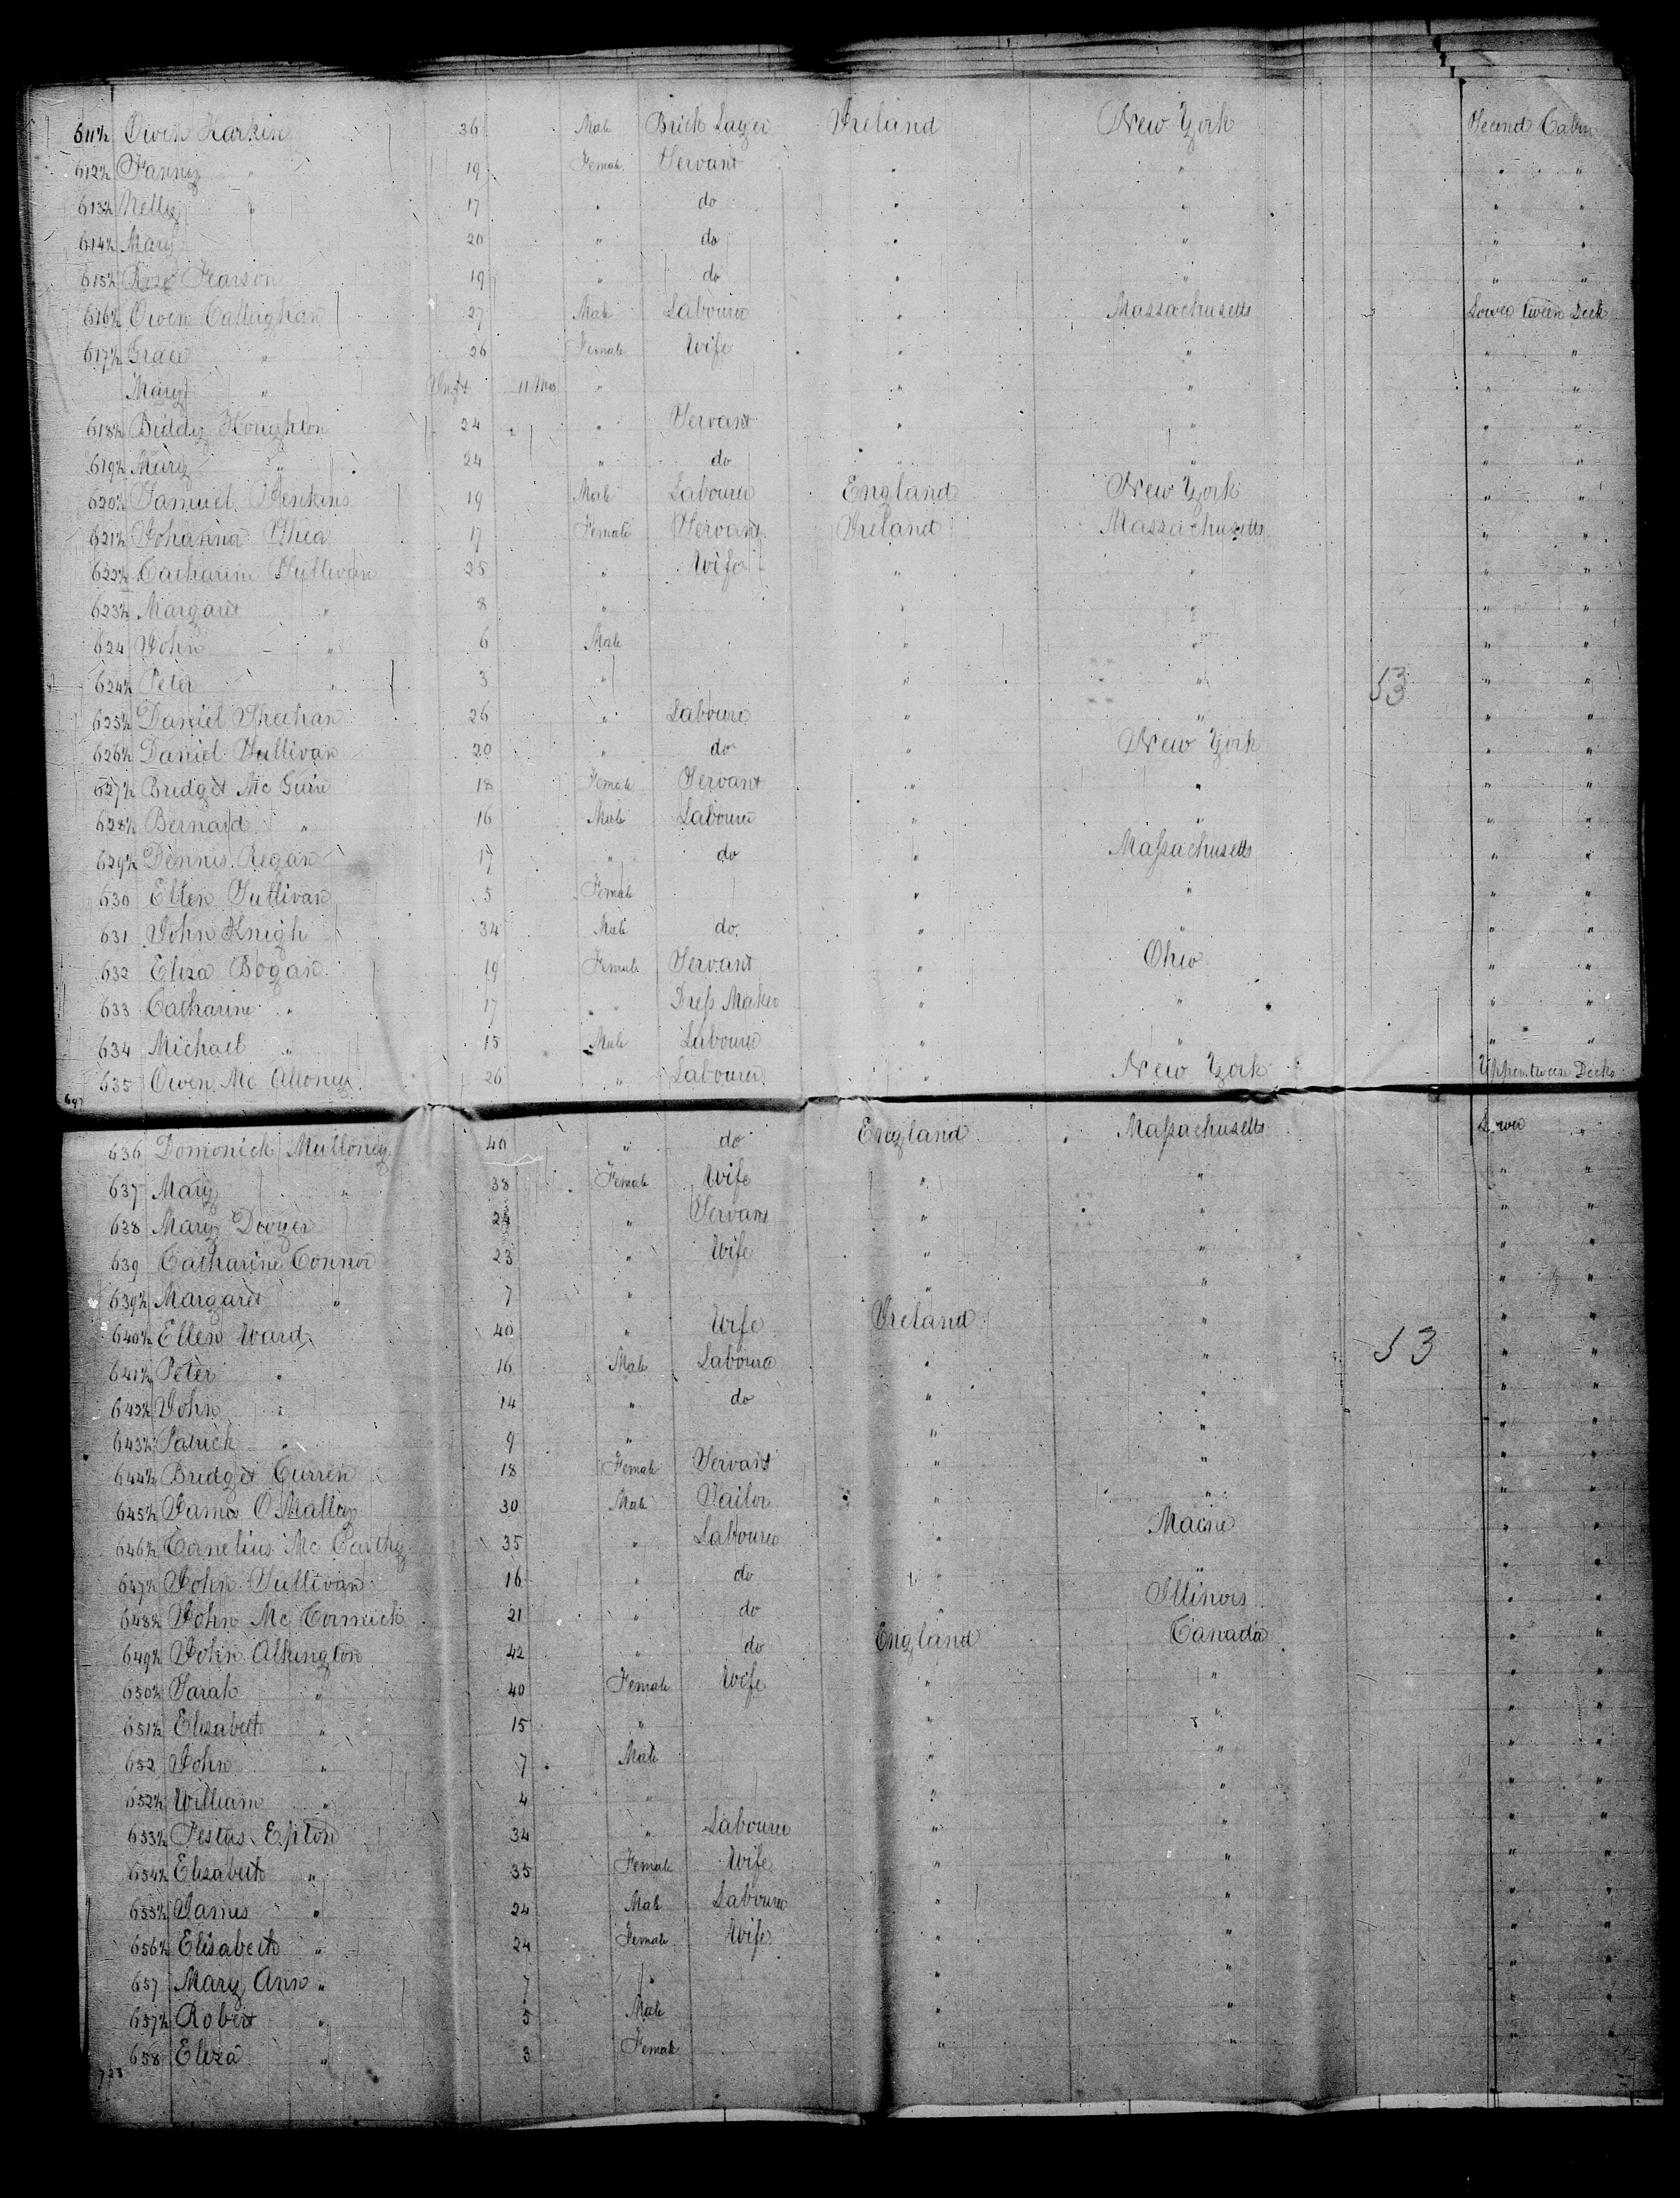 611½ Owen Harkin 36 Male Brick Layer Ireland New York Second Cabin
612½ Fanny " 19 Female Servant " " " "
613½ Nelly " 17 " do " " " "
614½ Mary 20 " do " " " "
615½ Rose Fearson 19 " do " " " "
616½ Owen Callaghan 27 Male Labourer " Massachusetts Lower tween Deck
617½ Grace " 26 Female Wife " " " "
Mary " Inft 11 Mos " " " " "
618½ Biddy Houghton 24 " Servant " " " "
619½ Mary " 24 " do " " " "
620½ Samuel Jenkins 19 Male Labourer England New York " "
621½ Johanna Shea 17 Female Servant Ireland Massachusetts " "
622½ Catharine Sullivan 25 " Wife " " " "
623½ Margaret " 8 " " " " "
624 John " 6 Male " " " "
624½ Peter " 3 " " " 53 " "
625½ Daniel Sheehan 26 " Labourer " " " "
626½ Daniel Sullivan 20 " do " New York " "
627½ Bridget Mc Guire 18 Female Servant " " " "
628½ Bernard " 16 Male Labourer " " " "
629½ Dennis Regan 17 " do " Massachusetts " "
630 Ellen Sullivan 5 Female " " " "
631 John Knigh 34 Male do " " " "
632 Eliza Bogan 19 Female Servant " Ohio " "
633 Catharine " 17 " Dress Maker " " " "
634 Michael " 15 Male Labourer " " " "
635 Owen Mc Alloney 26 " Labourer " New York Upper tween Decks
697
636 Domonick Mulloney 40 " do England Massachusetts Lower "
637 Mary " 38 Female Wife " " " "
638 Mary Dwyer 24 " Servant " " " "
639 Catharine Connor 23 " Wife " " " "
639½ Margaret " 7 " " " " "
640½ Ellen Ward 40 " Wife Ireland " " "
641½ Peter " 16 Male Labourer " " 53 " "
642½ John " 14 " do " " " "
643½ Patrick " 9 " " " " "
644½ Bridget Curren 18 Female Servant " " " "
645½ James O'Malley 30 Male Tailor " " " "
646½ Cornelius Mc Carthy 35 " Labourer " Maine " "
647½ John Sullivan 16 " do " " " "
648½ John Mc Cormick 21 " do " Illinois " "
649½ John Alkington 42 " do England Canada " "
650½ Sarah " 40 Female Wife " " " "
651½ Elisabeth " 15 " " " " "
652 John " 7 Male " " " "
652½ William " 4 " " " " "
653½ Festus Epton 34 " Labourer " " " "
654½ Elisabeth " 35 Female Wife " " " "
655½ James " 24 Male Labourer " " " "
656½ Elisabeth " 24 Female Wife " " " "
657 Mary Ann " 7 " " " " "
657½ Robert " 5 Male " " " "
658 Eliza " 3 Female " " " "
723